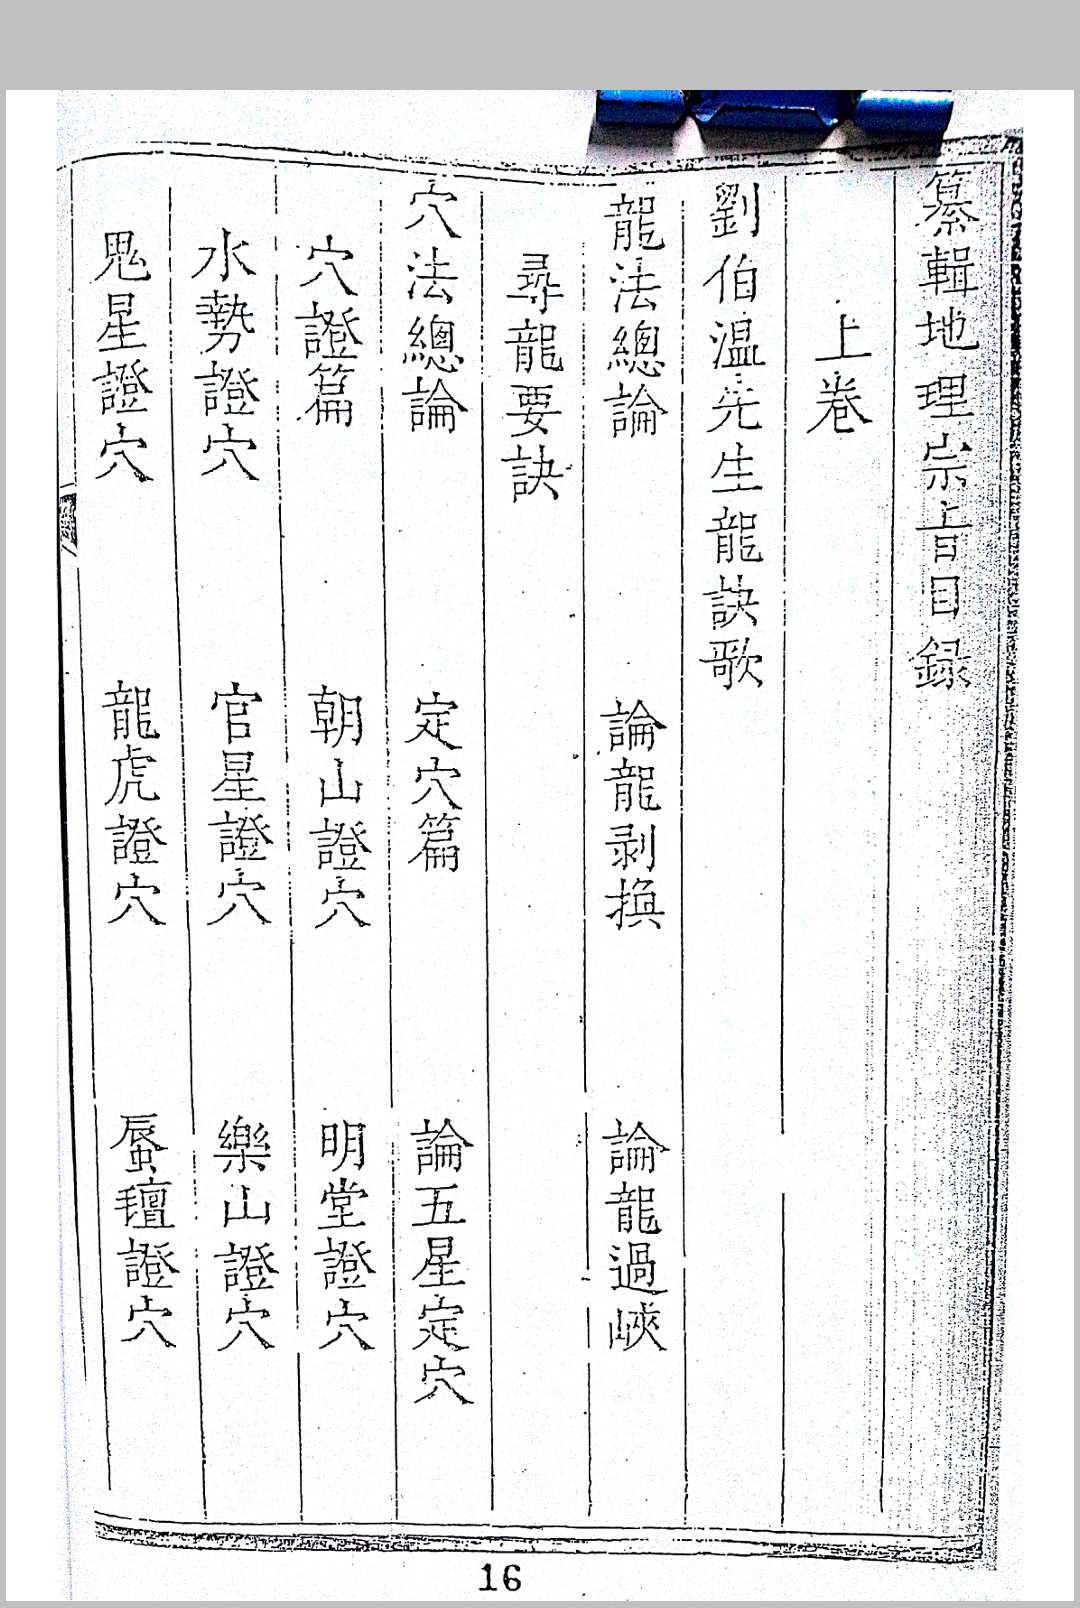 纂輯地理宗旨目録
上卷
劉伯温先生龍訣歌
龍法總論 論龍剥換 論龍過峽
尋龍要訣
穴法總論 定穴篇 論五星定穴
穴證篇 朝山證穴 明堂證穴
水勢證穴 官星證穴 樂山證穴
鬼星證穴 龍虎證穴 蜃氊證穴
16